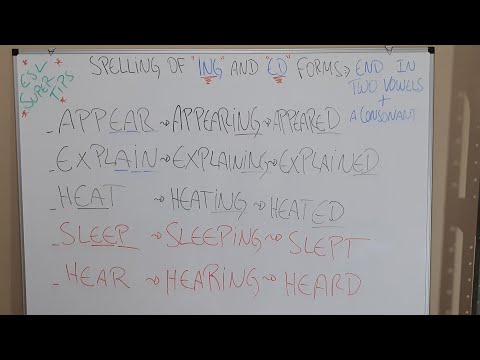 ESL
SUPER
TIPS
SPELLING OF "ING" AND "ED" FORMS → END IN
TWO VOWELS
+
A CONSONANT
_ APPEAR → APPEARING → APPEARED
_ EXPLAIN → EXPLAINING → EXPLAINED
_ HEAT → HEATING → HEATED
_ SLEEP → SLEEPING → SLEPT
_ HEAR → HEARING → HEARD